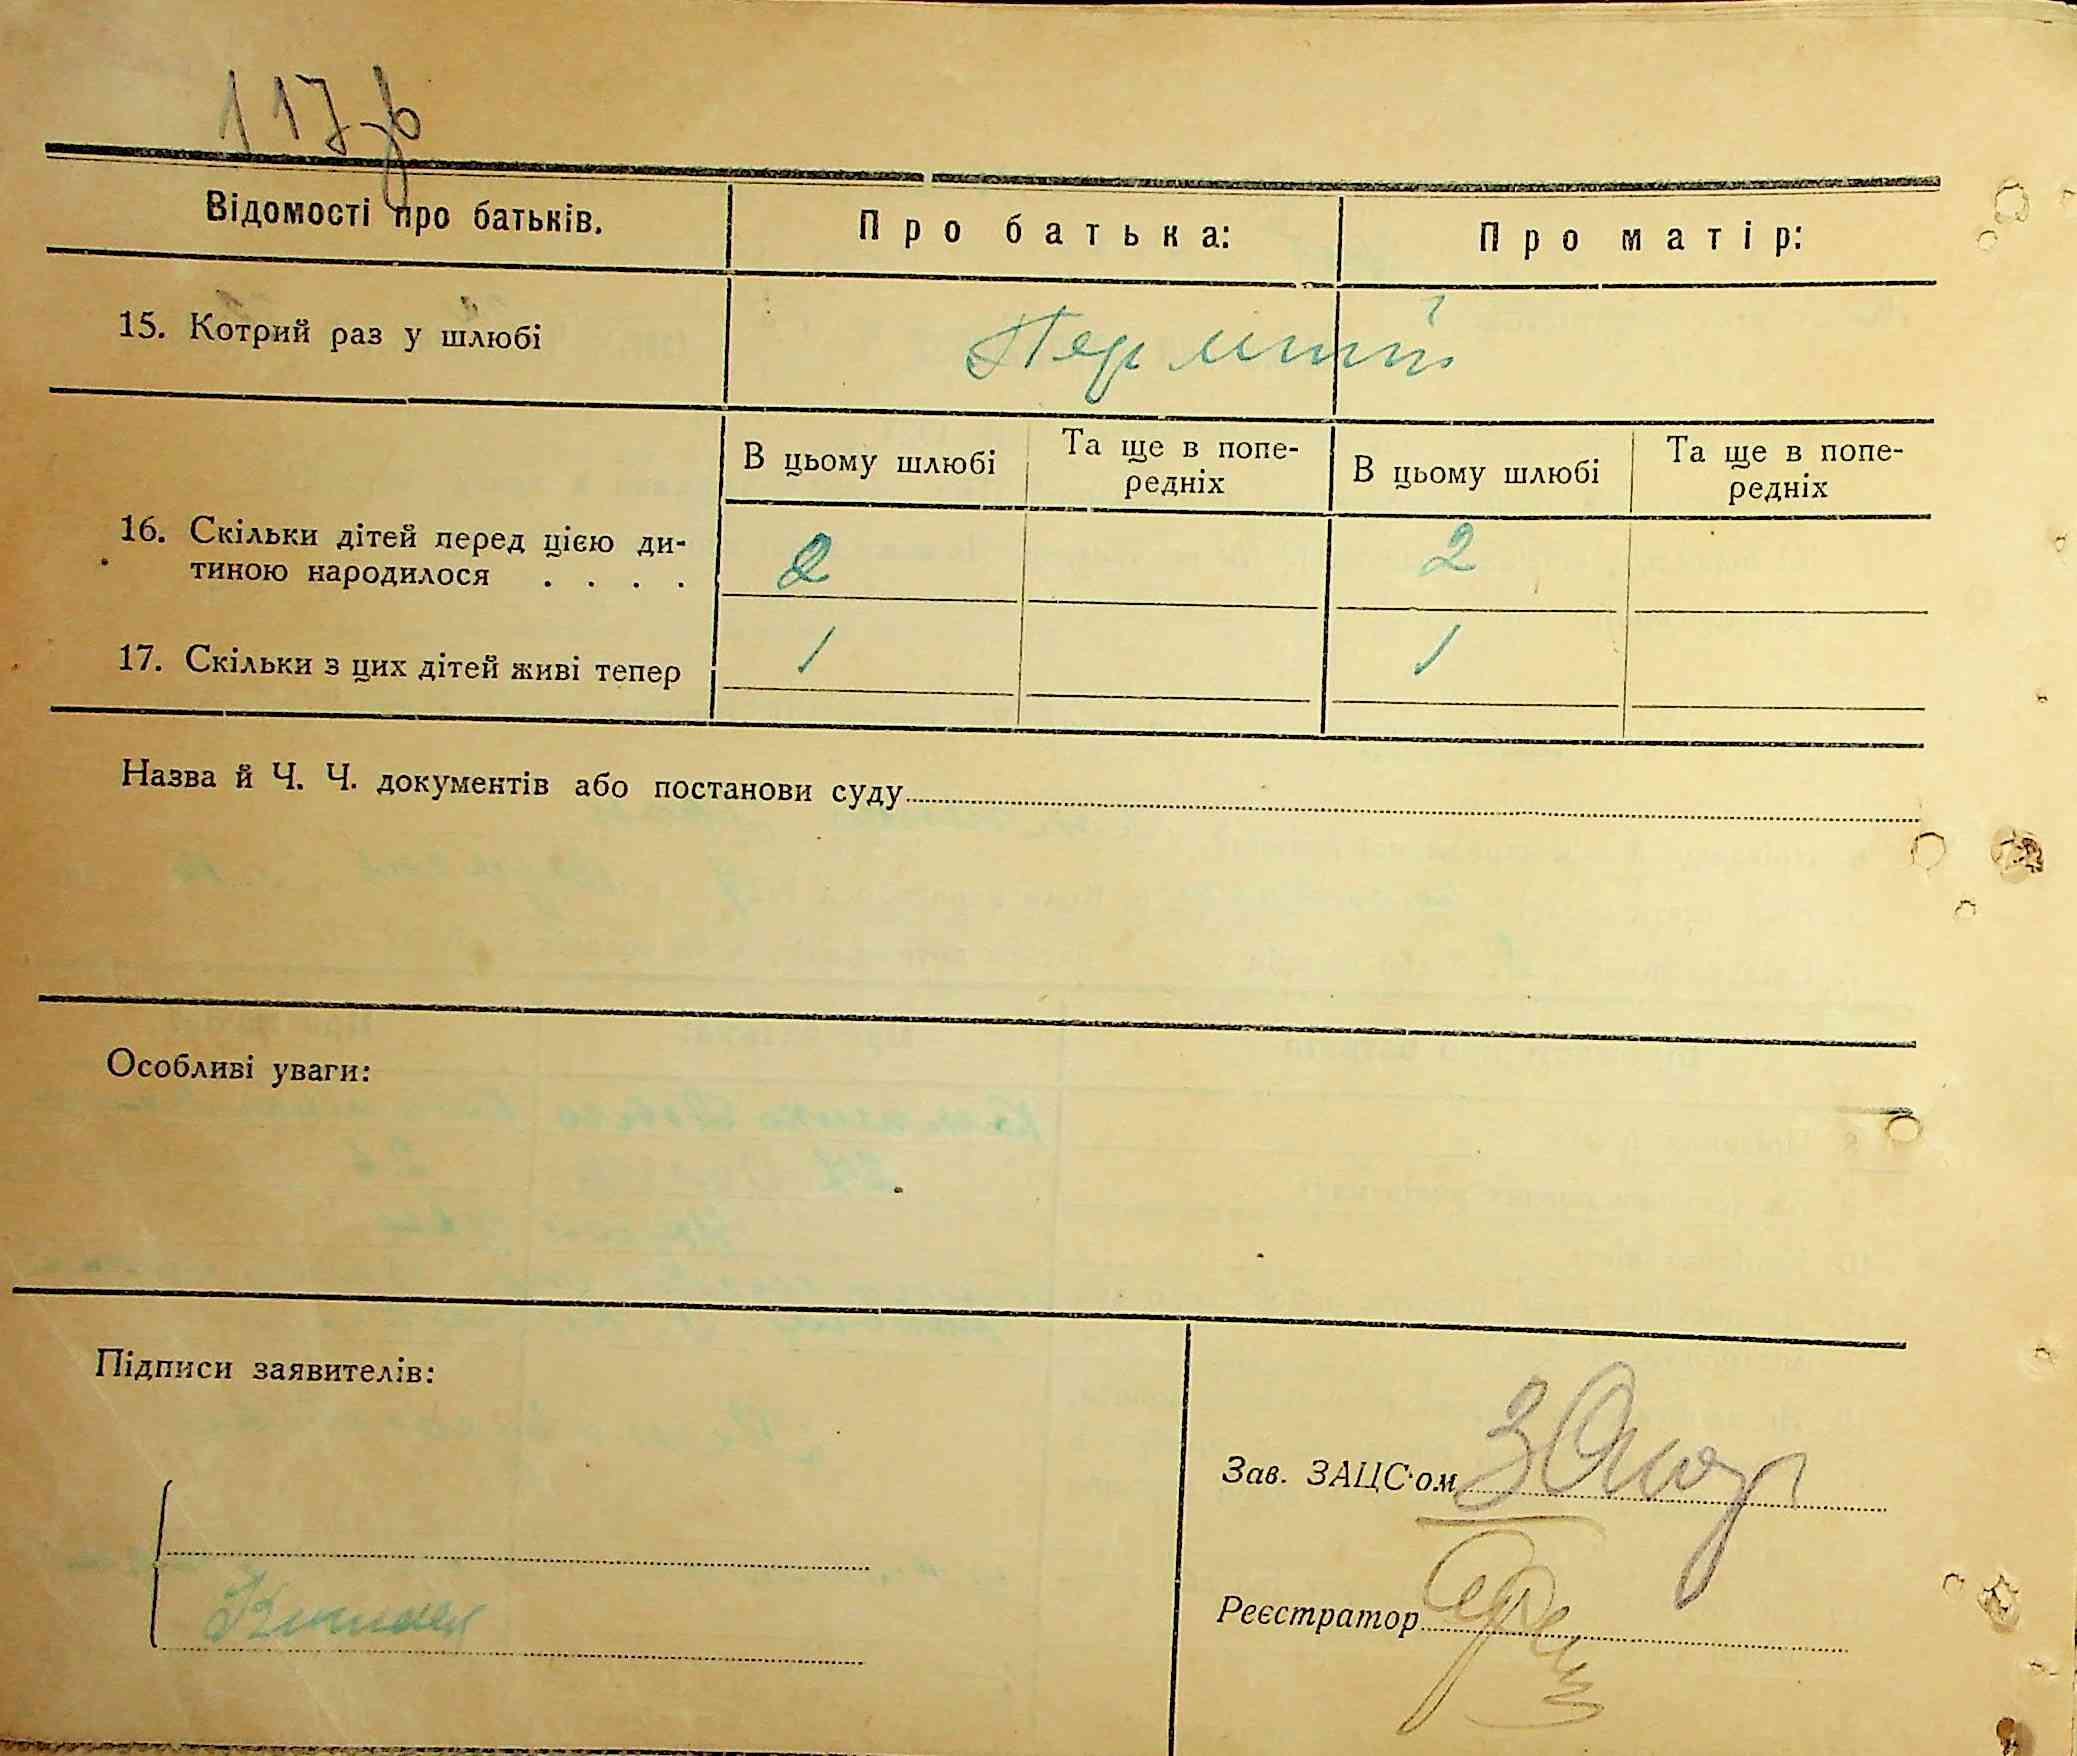 117 зв
Відомості про батьків.
Про батька:
Про матір:
15. Котрий раз у шлюбі
Перший
В цьому шлюбі
Та ще в попе-
редніх
В цьому шлюбі
Та ще в попе-
редніх
16. Скільки дітей перед цією ди-
тиною народилося . . . .
2
2
17. Скільки з цих дітей живі тепер
1
1
Назва й Ч. Ч. документів або постанови суду
Особливі уваги:
Підписи заявителів:
Зав. ЗАЦС'ом
Реєстратор